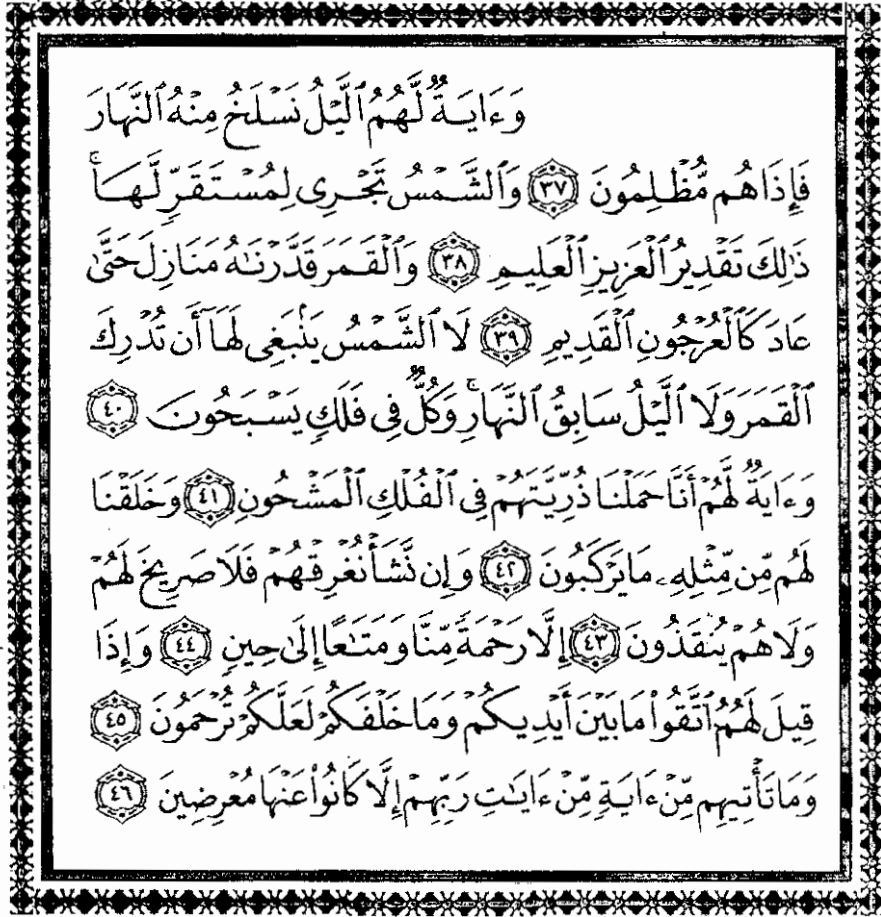 وَءَايَةٌ لَّهُمُ ٱلَّيْلُ نَسْلَخُ مِنْهُ ٱلنَّهَارَ
فَإِذَا هُم مُّظْلِمُونَ ٣٧ وَٱلشَّمْسُ تَجْرِى لِمُسْتَقَرٍّ لَّهَا ۚ
ذَٰلِكَ تَقْدِيرُ ٱلْعَزِيزِ ٱلْعَلِيمِ ٣٨ وَٱلْقَمَرَ قَدَّرْنَـٰهُ مَنَازِلَ حَتَّىٰ
عَادَ كَٱلْعُرْجُونِ ٱلْقَدِيمِ ٣٩ لَا ٱلشَّمْسُ يَنۢبَغِى لَهَآ أَن تُدْرِكَ
ٱلْقَمَرَ وَلَا ٱلَّيْلُ سَابِقُ ٱلنَّهَارِ ۚ وَكُلٌّ فِى فَلَكٍ يَسْبَحُونَ ٤٠
وَءَايَةٌ لَّهُمْ أَنَّا حَمَلْنَا ذُرِّيَّتَهُمْ فِى ٱلْفُلْكِ ٱلْمَشْحُونِ ٤١ وَخَلَقْنَا
لَهُم مِّن مِّثْلِهِۦ مَا يَرْكَبُونَ ٤٢ وَإِن نَّشَأْ نُغْرِقْهُمْ فَلَا صَرِيخَ لَهُمْ
وَلَا هُمْ يُنقَذُونَ ٤٣ إِلَّا رَحْمَةً مِّنَّا وَمَتَـٰعًا إِلَىٰ حِينٍ ٤٤ وَإِذَا
قِيلَ لَهُمُ ٱتَّقُوا۟ مَا بَيْنَ أَيْدِيكُمْ وَمَا خَلْفَكُمْ لَعَلَّكُمْ تُرْحَمُونَ ٤٥
وَمَا تَأْتِيهِم مِّنْ ءَايَةٍ مِّنْ ءَايَـٰتِ رَبِّهِمْ إِلَّا كَانُوا۟ عَنْهَا مُعْرِضِينَ ٤٦